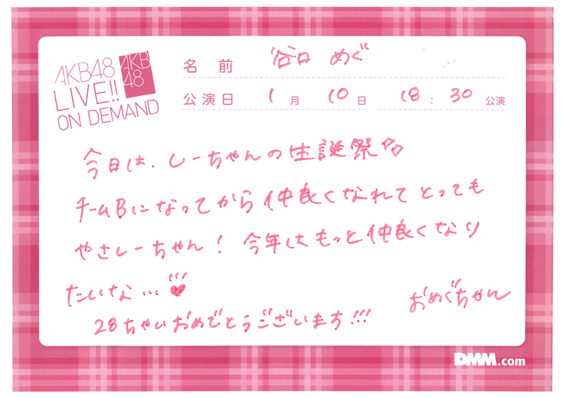 AKB48
LIVE!!
ON DEMAND
AKB
48
名前 谷口 めぐ
公演日 1月 10日 18:30 公演
今日は、しーちゃんの生誕祭
チームBになってから仲良くなれてとっても
やさしーちゃん！ 今年はもっと仲良くなり
たいな...
28ちゃいおめでとうございます!!!
おめぐちゃん
DMM.com